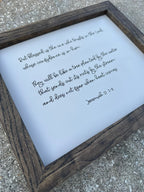 But blessed is the one who trusts in the Lord,
whose confidence is in him.
They will be like a tree planted by the water
that sends out its roots by the stream
and does not fear when heat comes
Jeremiah 17:7-8